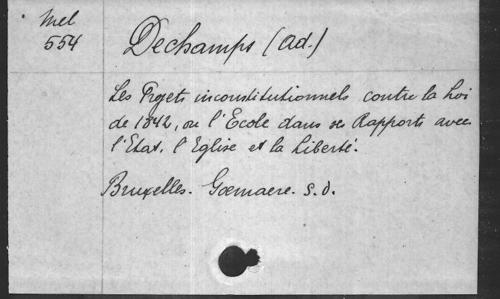 Mel
554
Dechamps (Ad.)
Les Projets inconstitutionnels contre la Loi
de 1842, ou l'Ecole dans ses Rapports avec
l'Etat, l'Eglise et la Liberté.
Bruxelles. Goemaere. s.d.